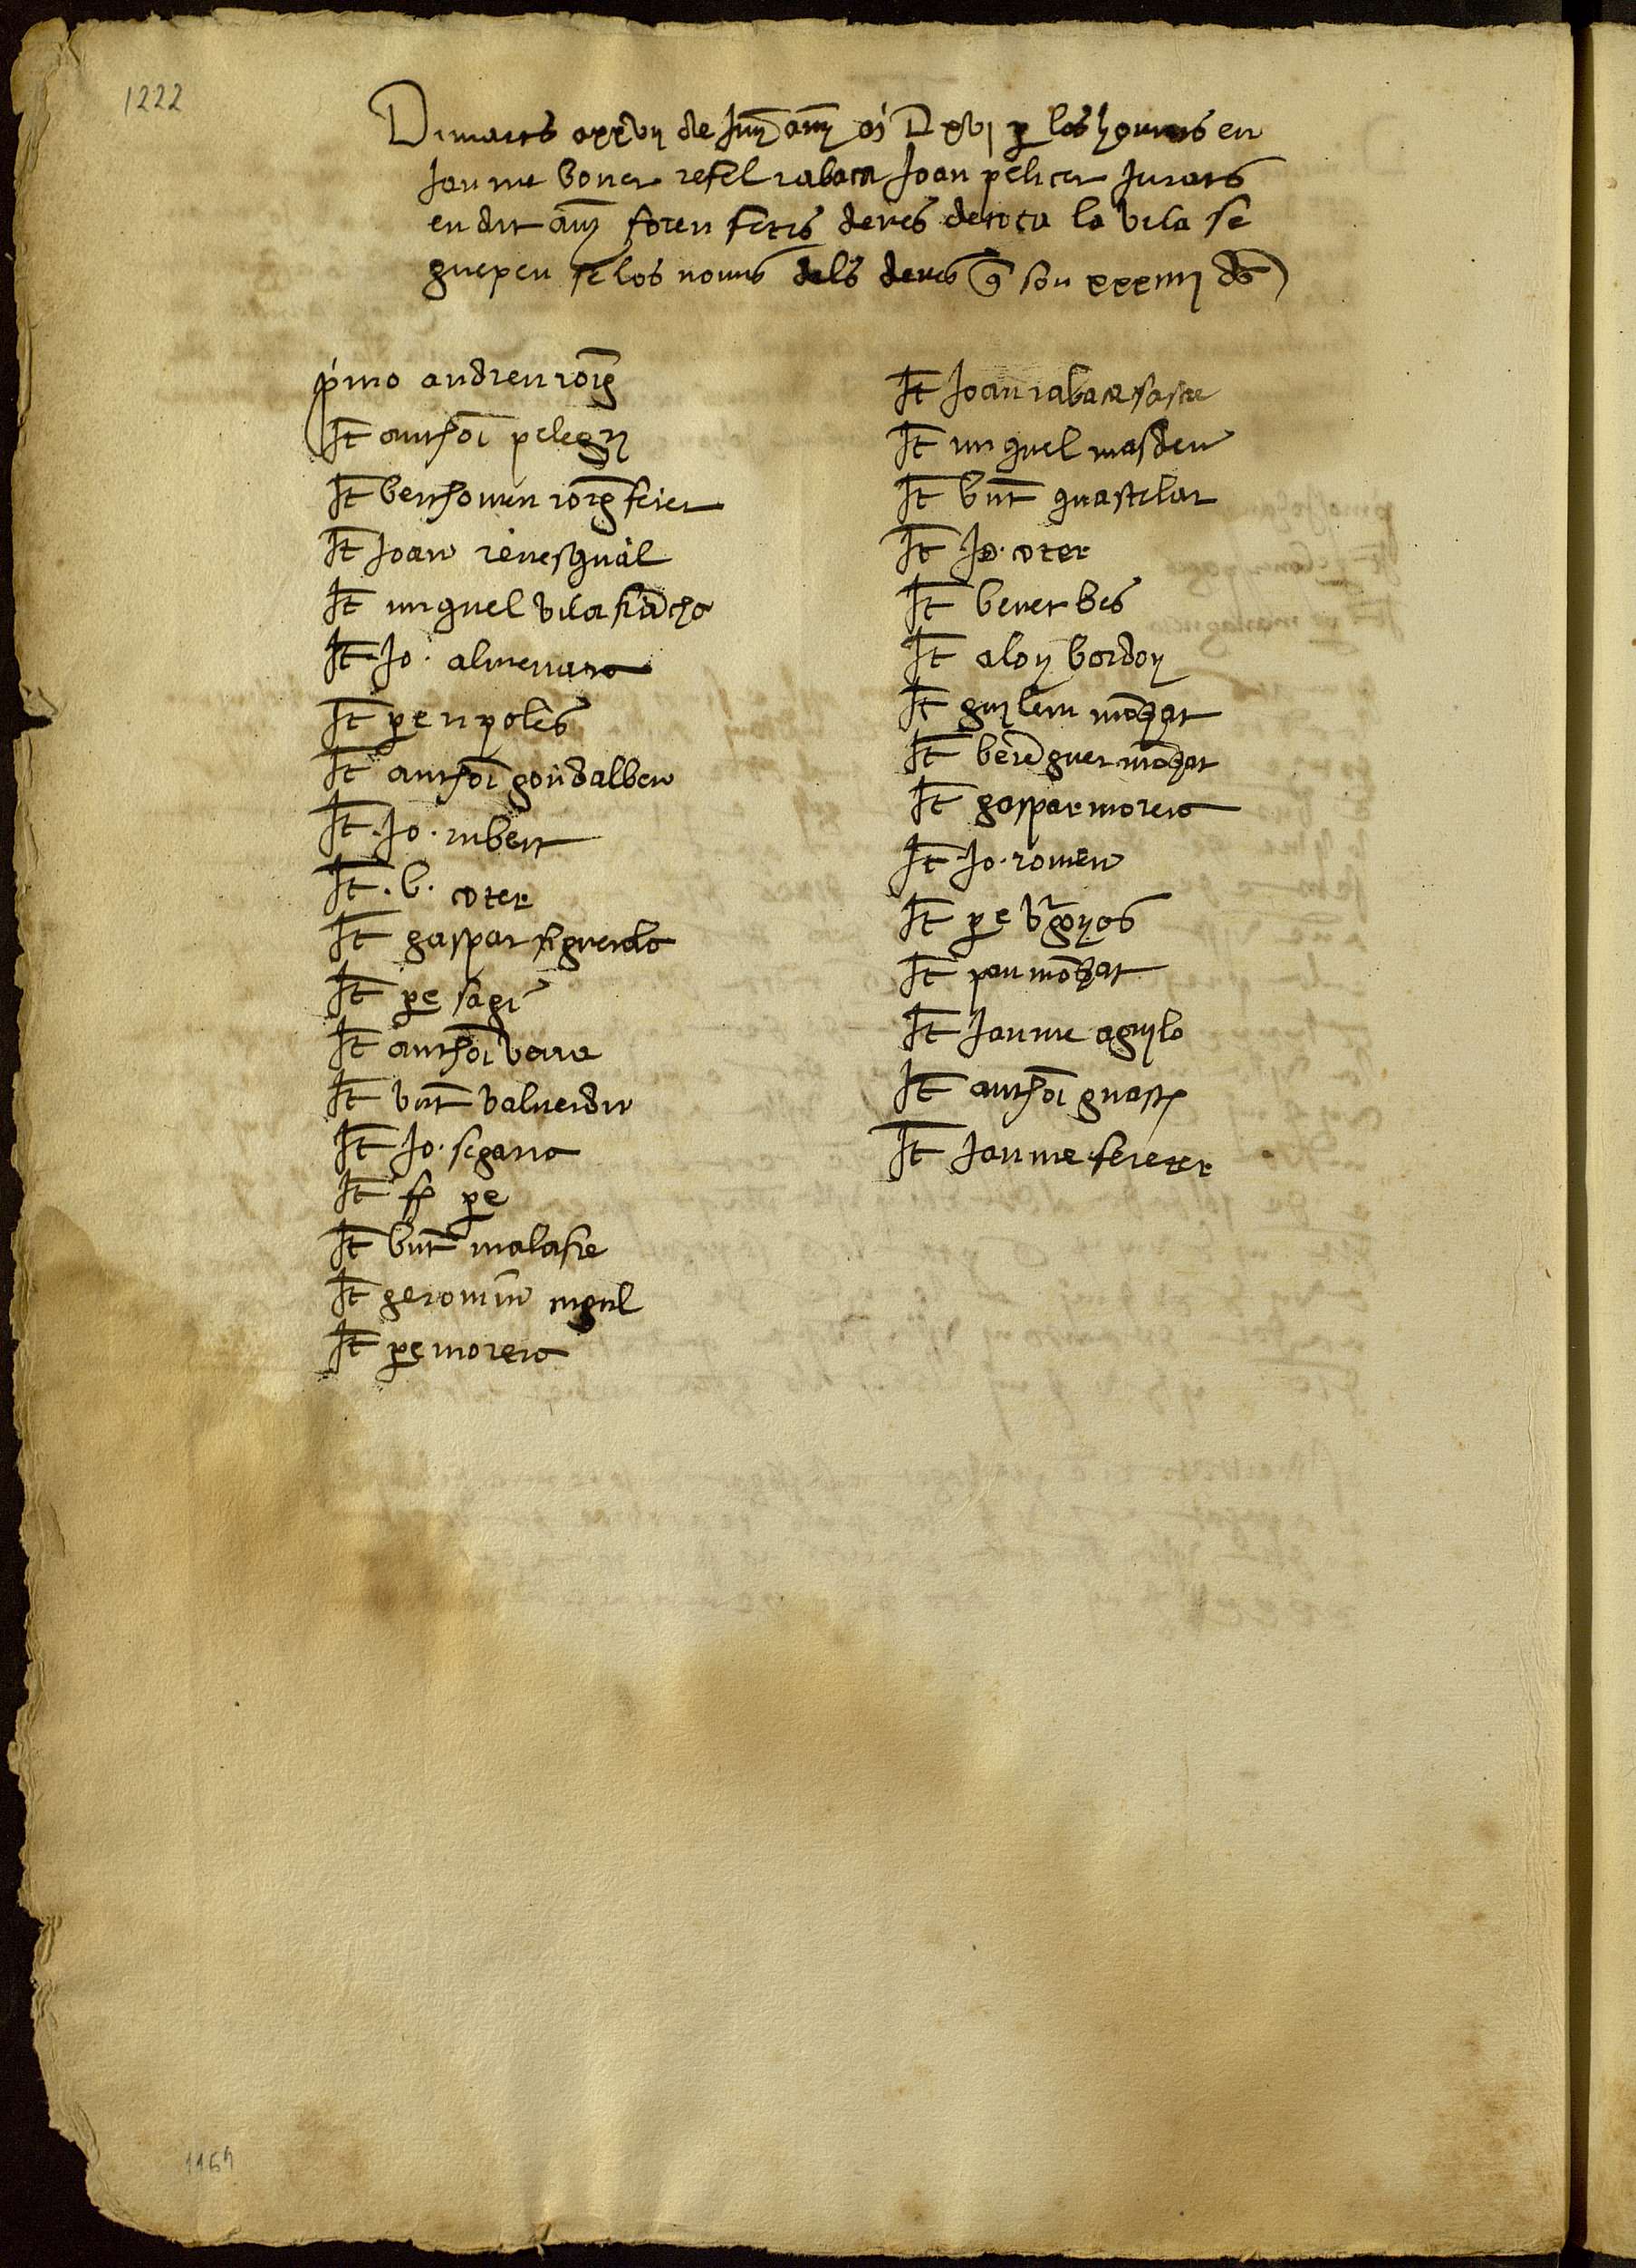 1222
Dimarts xxvij de Juny any M D xvj per los honors en
Jaume boner refel rabaca Joan pelicer Jurats
en dit any foren fetes denes de tota la vila se
guexen se los noms dels denes q son xxxiiij ds
primo andreu roig
It anthoni pelegri
It berthomeu roig ferer
It Joan venesqual
It miquel vilafrancha
It Jo. almenara
It pere npoles
It anthoni gondalbeu
It . Jo . robert
It . b . oter
It gaspar figuerola
It pere sagi
It anthoni vera
It vnt valuerdu
It Jo. segarra
It ff pere
It vnt malafre
It geronim mgul
It pere morera
It Joan rabaca sastre
It miquel masdeu
It vnt guastelar
It . Jo. oter
It benet bes
It aloy bordoy
It guylem monzat
It berenguer monzat
It gaspar morera
It . Jo. romeu
It pere vrgoyos
It pau monzat
It Jaume aguylo
It anthoni guasch
It Jaume ferrer
1164